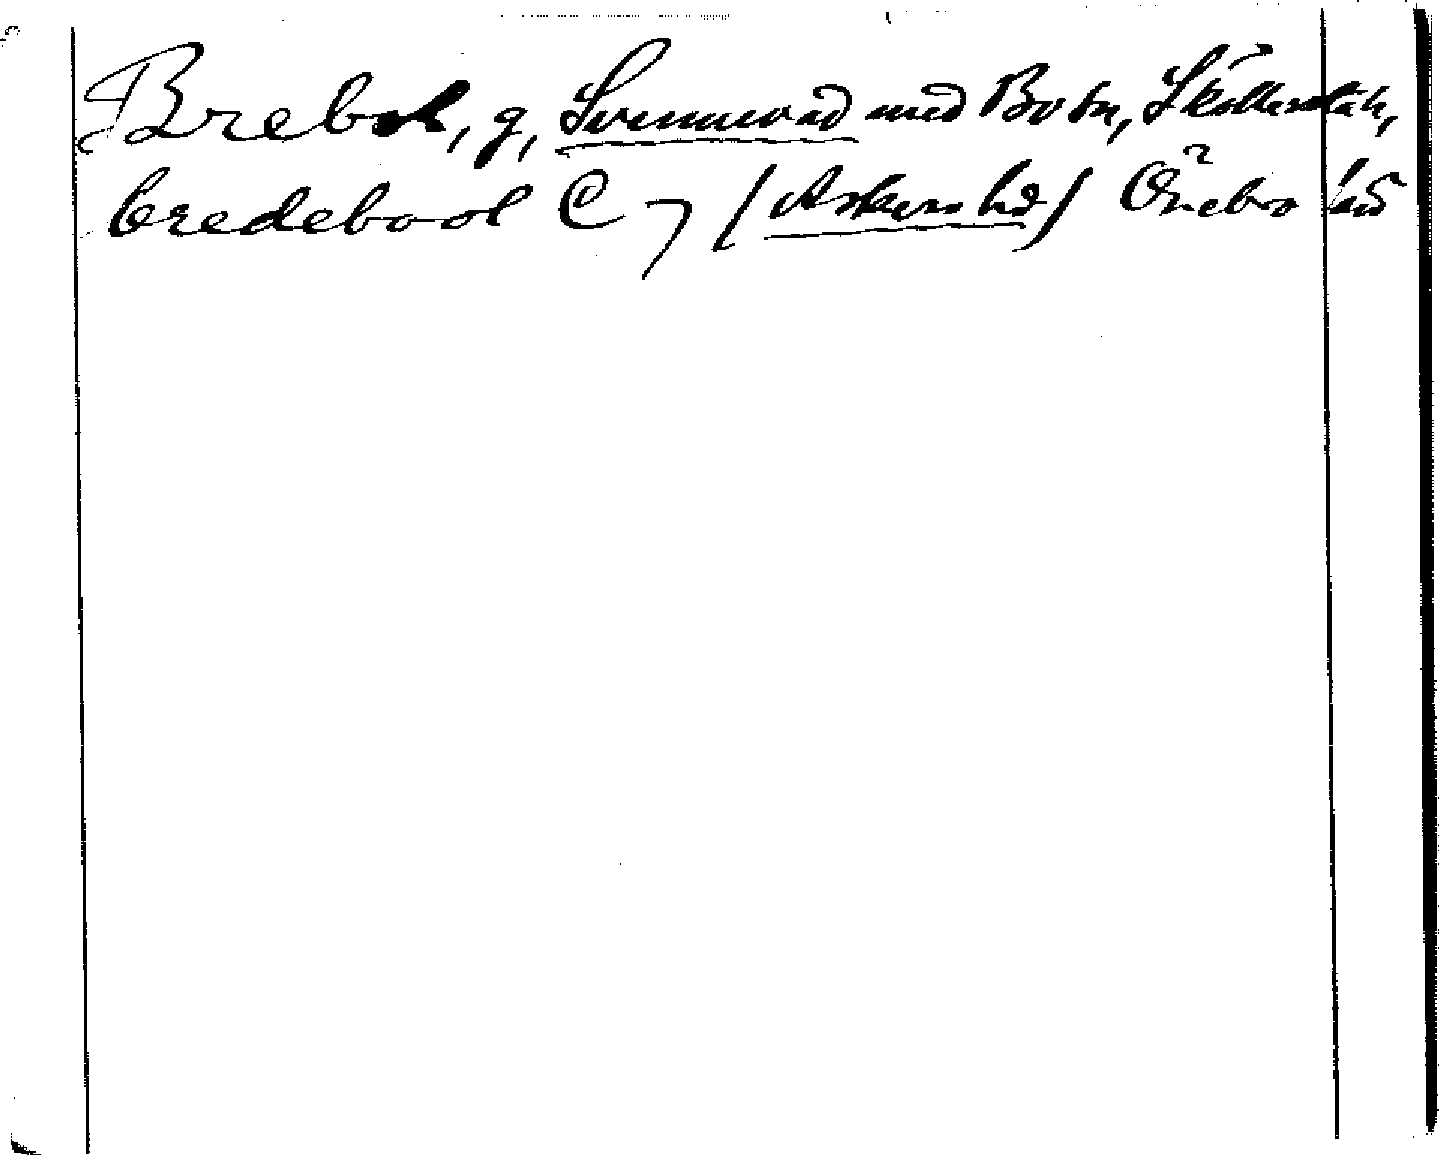 Brebol, g, Svennevad med Bo sn, Sköllerstads,
bredebool C 7 (Askers hd) Örebro län